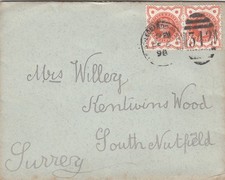 90
342
Mrs Willery
Kentwins Wood
South Nutfield
Surrey